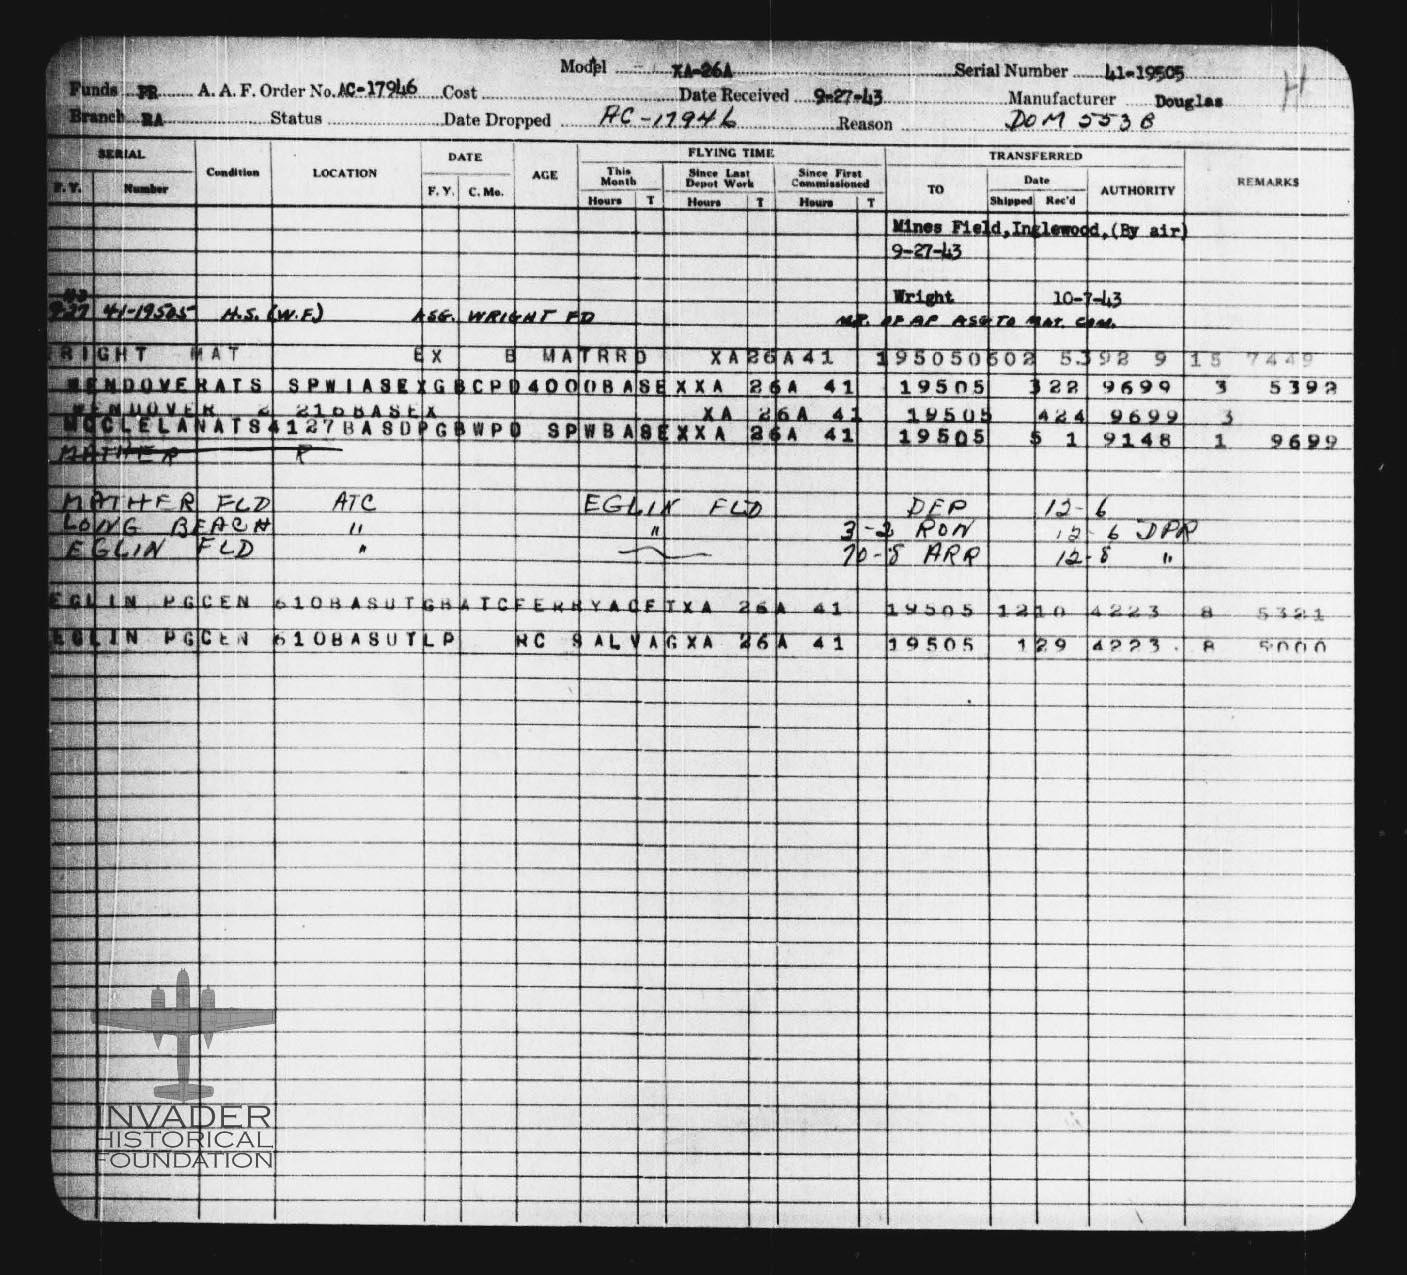 Model XA-26A Serial Number 41-19505
Funds PR A. A. F. Order No. AC-17946 Cost Date Received 9-27-43 Manufacturer Douglas
Branch RA Status Date Dropped AC-17946 Reason DOM 553 B
H
SERIAL Condition LOCATION DATE AGE FLYING TIME TRANSFERRED REMARKS
This Month Since Last Depot Work Since First Commissioned TO Date AUTHORITY
F. Y. Number F. Y. C. Mo. Hours T Hours T Hours T Shipped Rec'd
Mines Field, Inglewood, (By air)
9-27-43
Wright 10-7-43
9-27 41-19505 H.S. (W.F.) ASG. WRIGHT FD OF AP ASG TO MAT. COM.
RIGHT MAT EX B MATRRD XA26A41 195050602 5392 9 15 7449
WENDOVERATS SPWIASEXGBCPD4000BASEXXA 26A 41 19505 322 9699 3 5392
WENDOVER 2 216BASEX XA 26A 41 19505 424 9699 3
MCCLELANATS4127BASDPGBWPD SPWBASEXXA 26A 41 19505 5 1 9148 1 9699
MATHER P
MATHER FLD ATC EGLIN FLD DEP 12-6
LONG BEACH " " 3-2 RON 12-6 DPR
EGLIN FLD " 70-8 ARR 12-8 "
EGLIN PGCEN 610BASUTGBATCFERRYACETXA 26A 41 19505 1210 4223 8 5321
EGLIN PGCEN 610BASUTLP RC SALVAGXA 26A 41 19505 129 4223 8 5000
INVADER
HISTORICAL
FOUNDATION